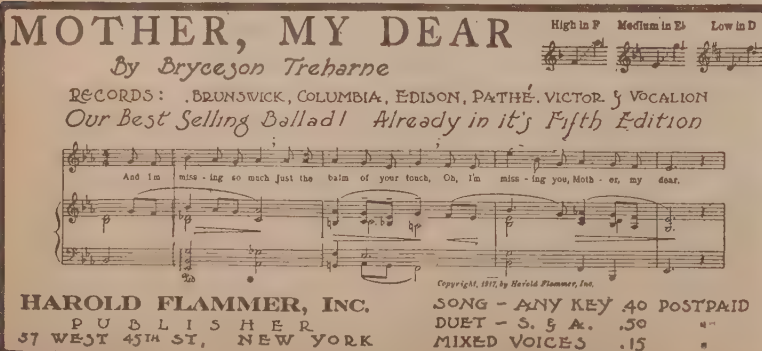 MOTHER, MY DEAR
High in F Medium in E♭ Low in D
By Bryceson Treharne
RECORDS: .BRUNSWICK, COLUMBIA, EDISON, PATHÉ. VICTOR & VOCALION
Our Best Selling Ballad! Already in it's Fifth Edition
And I'm miss - ing so much Just the balm of your touch, Oh, I'm miss - ing you, Moth - er, my dear.
Copyright, 1917, by Harold Flammer, Inc.
HAROLD FLAMMER, INC.
PUBLISHER
57 WEST 45TH ST, NEW YORK
SONG - ANY KEY .40 POSTPAID
DUET - S. & A. .50 "
MIXED VOICES .15 "